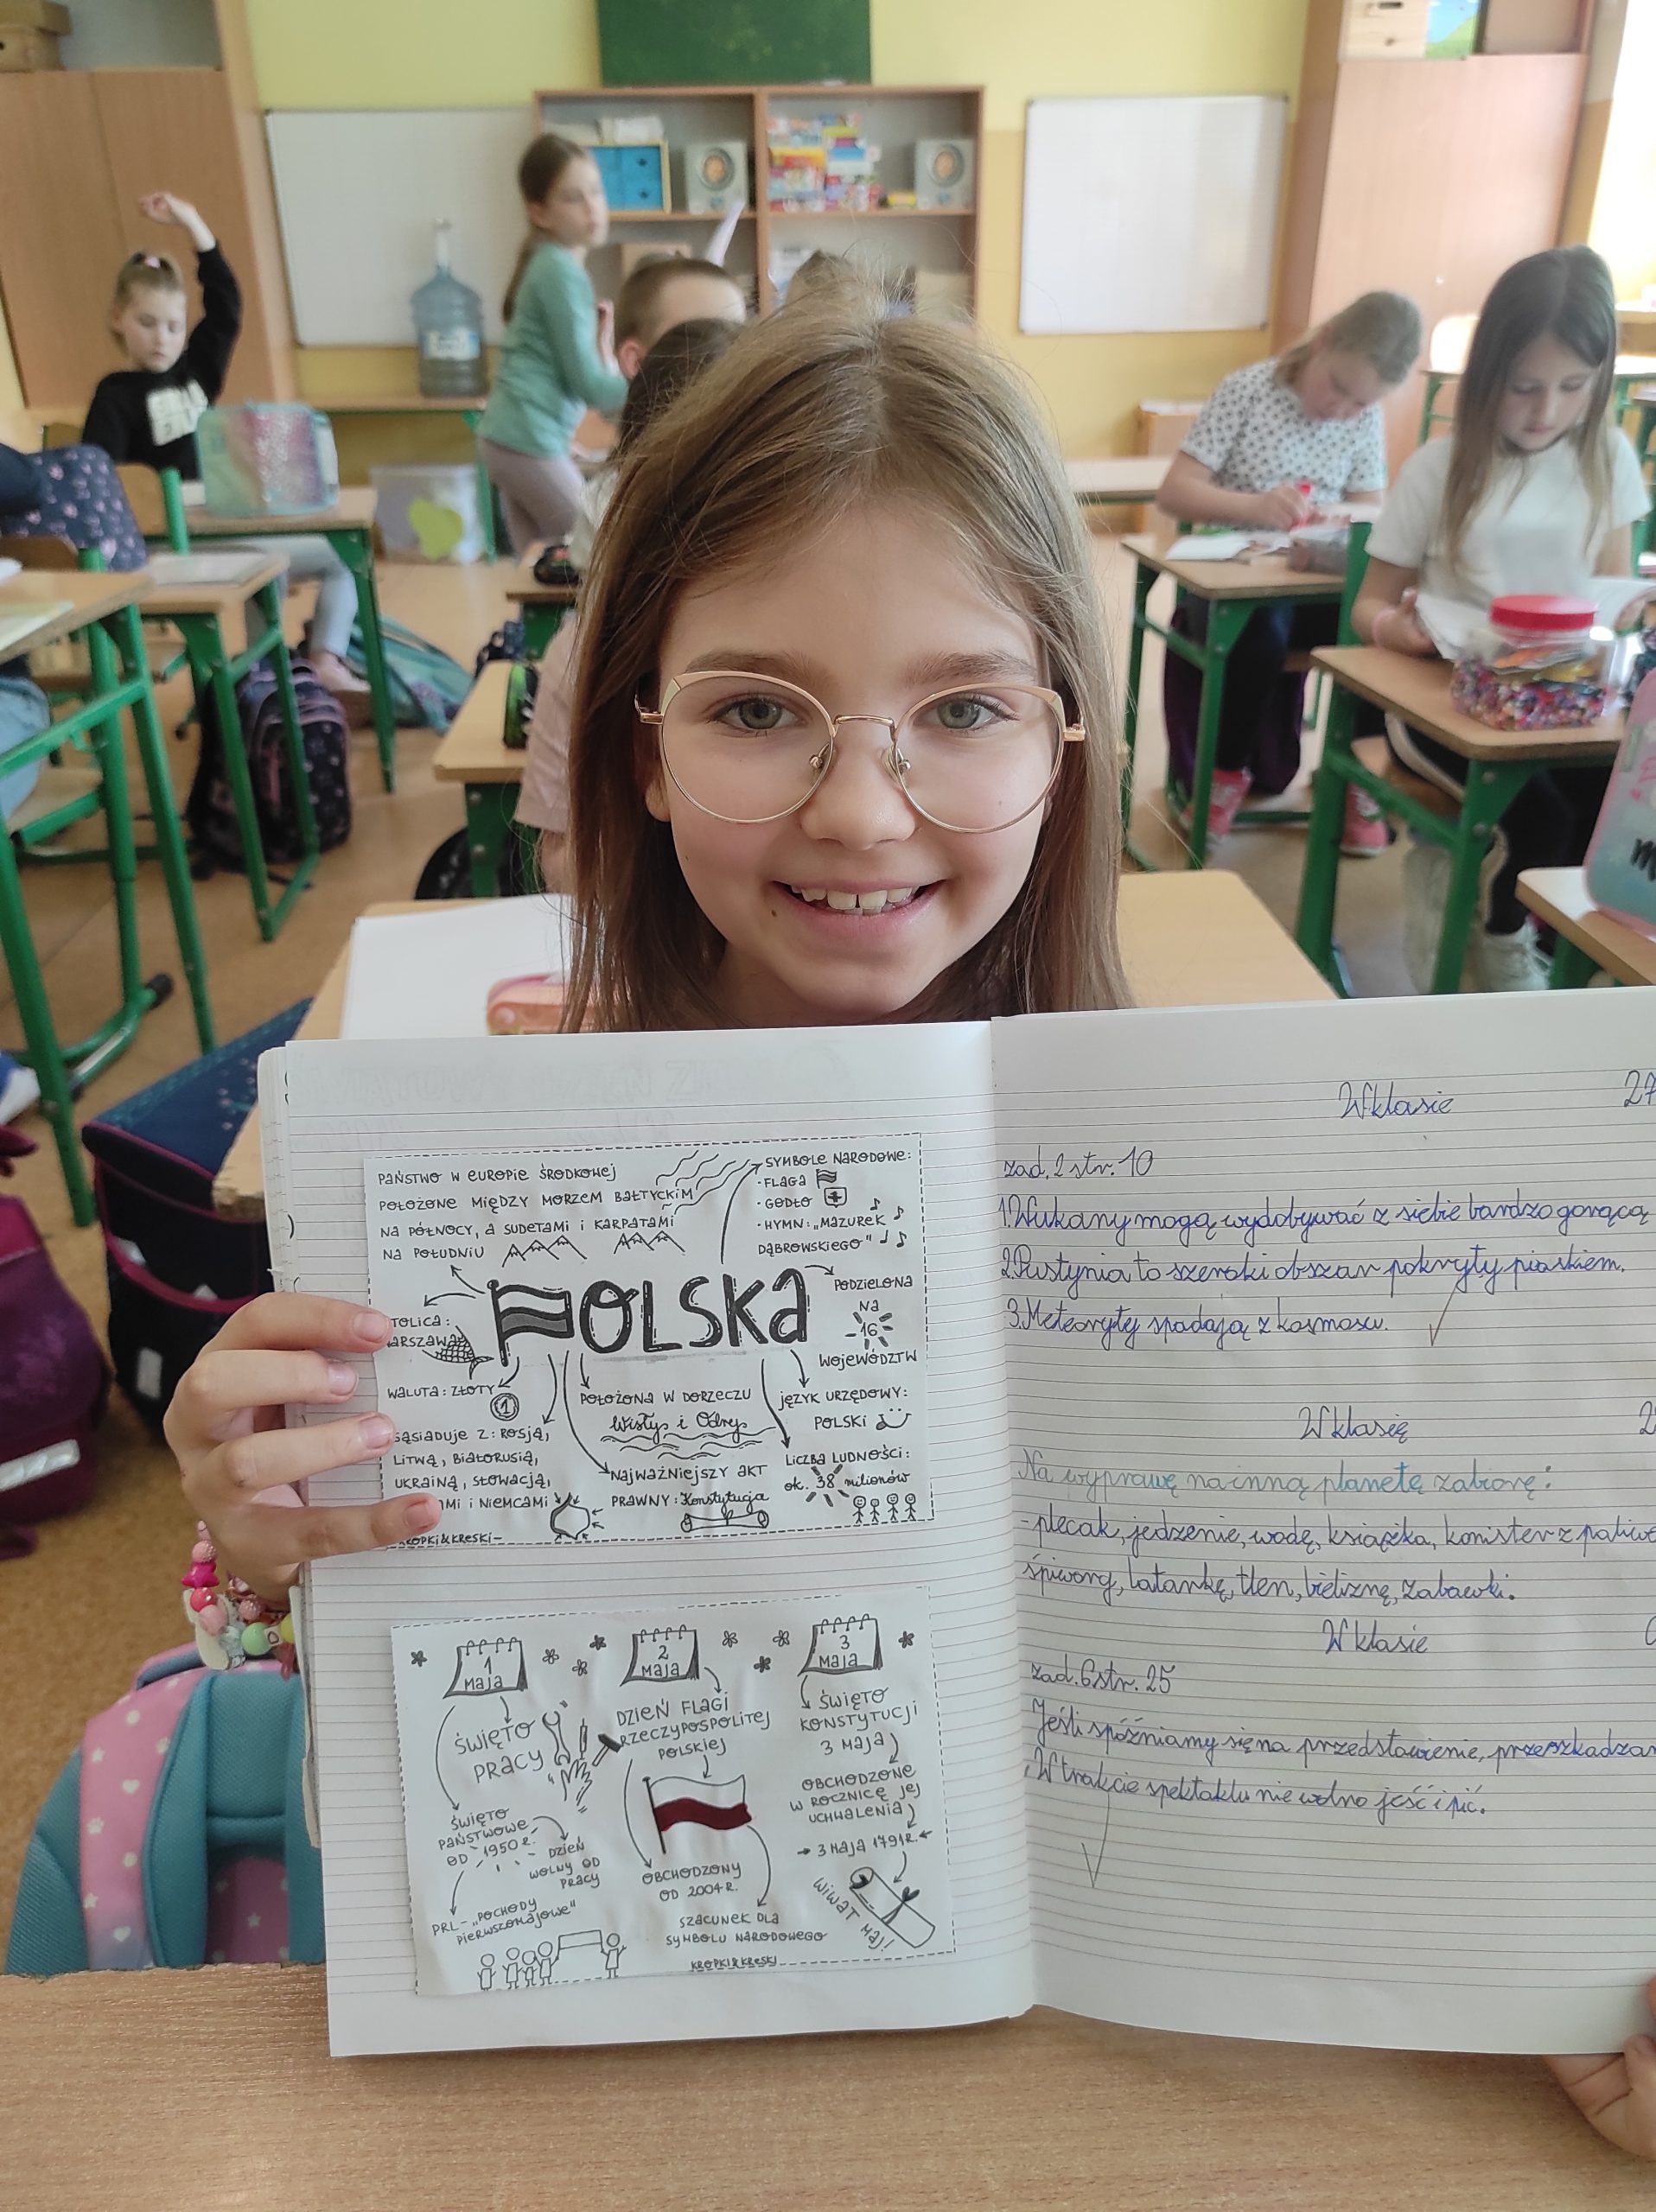 PAŃSTWO W EUROPIE ŚRODKOWEJ
POŁOŻONE MIĘDZY MORZEM BAŁTYCKIM
NA PÓŁNOCY, A SUDETAMI I KARPATAMI
NA POŁUDNIU
SYMBOLE NARODOWE:
- FLAGA
- GODŁO
- HYMN: „MAZUREK
DĄBROWSKIEGO"
POLSKA
PODZIELONA
NA
16
WOJEWÓDZTW
TOLICA:
ARSZAWA
WALUTA: ZŁOTY
1
SĄSIADUJE Z: ROSJĄ,
LITWĄ, BIAŁORUSIĄ,
UKRAINĄ, SŁOWACJĄ,
AMI I NIEMCAMI
KROPKI&KRESKI
POŁOŻONA W DORZECZU
Wisły i Odry
NAJWAŻNIEJSZY AKT
PRAWNY: Konstytucja
JĘZYK URZĘDOWY:
POLSKI
LICZBA LUDNOŚCI:
ok. 38 milionów
1
MAJA
ŚWIĘTO
PRACY
ŚWIĘTO
PAŃSTWOWE
OD 1950 R.
DZIEŃ
WOLNY OD
PRACY
PRL - „POCHODY
PIERWSZOMAJOWE"
2
MAJA
DZIEŃ FLAGI
RZECZYPOSPOLITEJ
POLSKIEJ
OBCHODZONY
OD 2004 R.
SZACUNEK DLA
SYMBOLU NARODOWEGO
KROPKI&KRESKI
3
MAJA
ŚWIĘTO
KONSTYTUCJI
3 MAJA
OBCHODZONE
W ROCZNICĘ JEJ
UCHWALENIA
3 MAJA 1791R.
WIWAT MAJ!
W klasie 27
zad. 2 str. 10
1. Wukany mogą wydobywać z siebie bardzo gorącą
2. Pustynia to szeroki obszar pokryty piaskiem.
3. Meteoryty spadają z kosmosu.
W klasię 2
Na wyprawę na inną planetę zabiorę:
- plecak, jedzenie, wodę, książka, konister z paliwe
śpiworg, latankę, tlen, bieliznę, zabawki.
W klasie
zad. 6 str. 25
Jeśli spóźniamy się na przedstawienie, przeszkadzam
W trakcie spektaklu nie wolno jeść i pić.